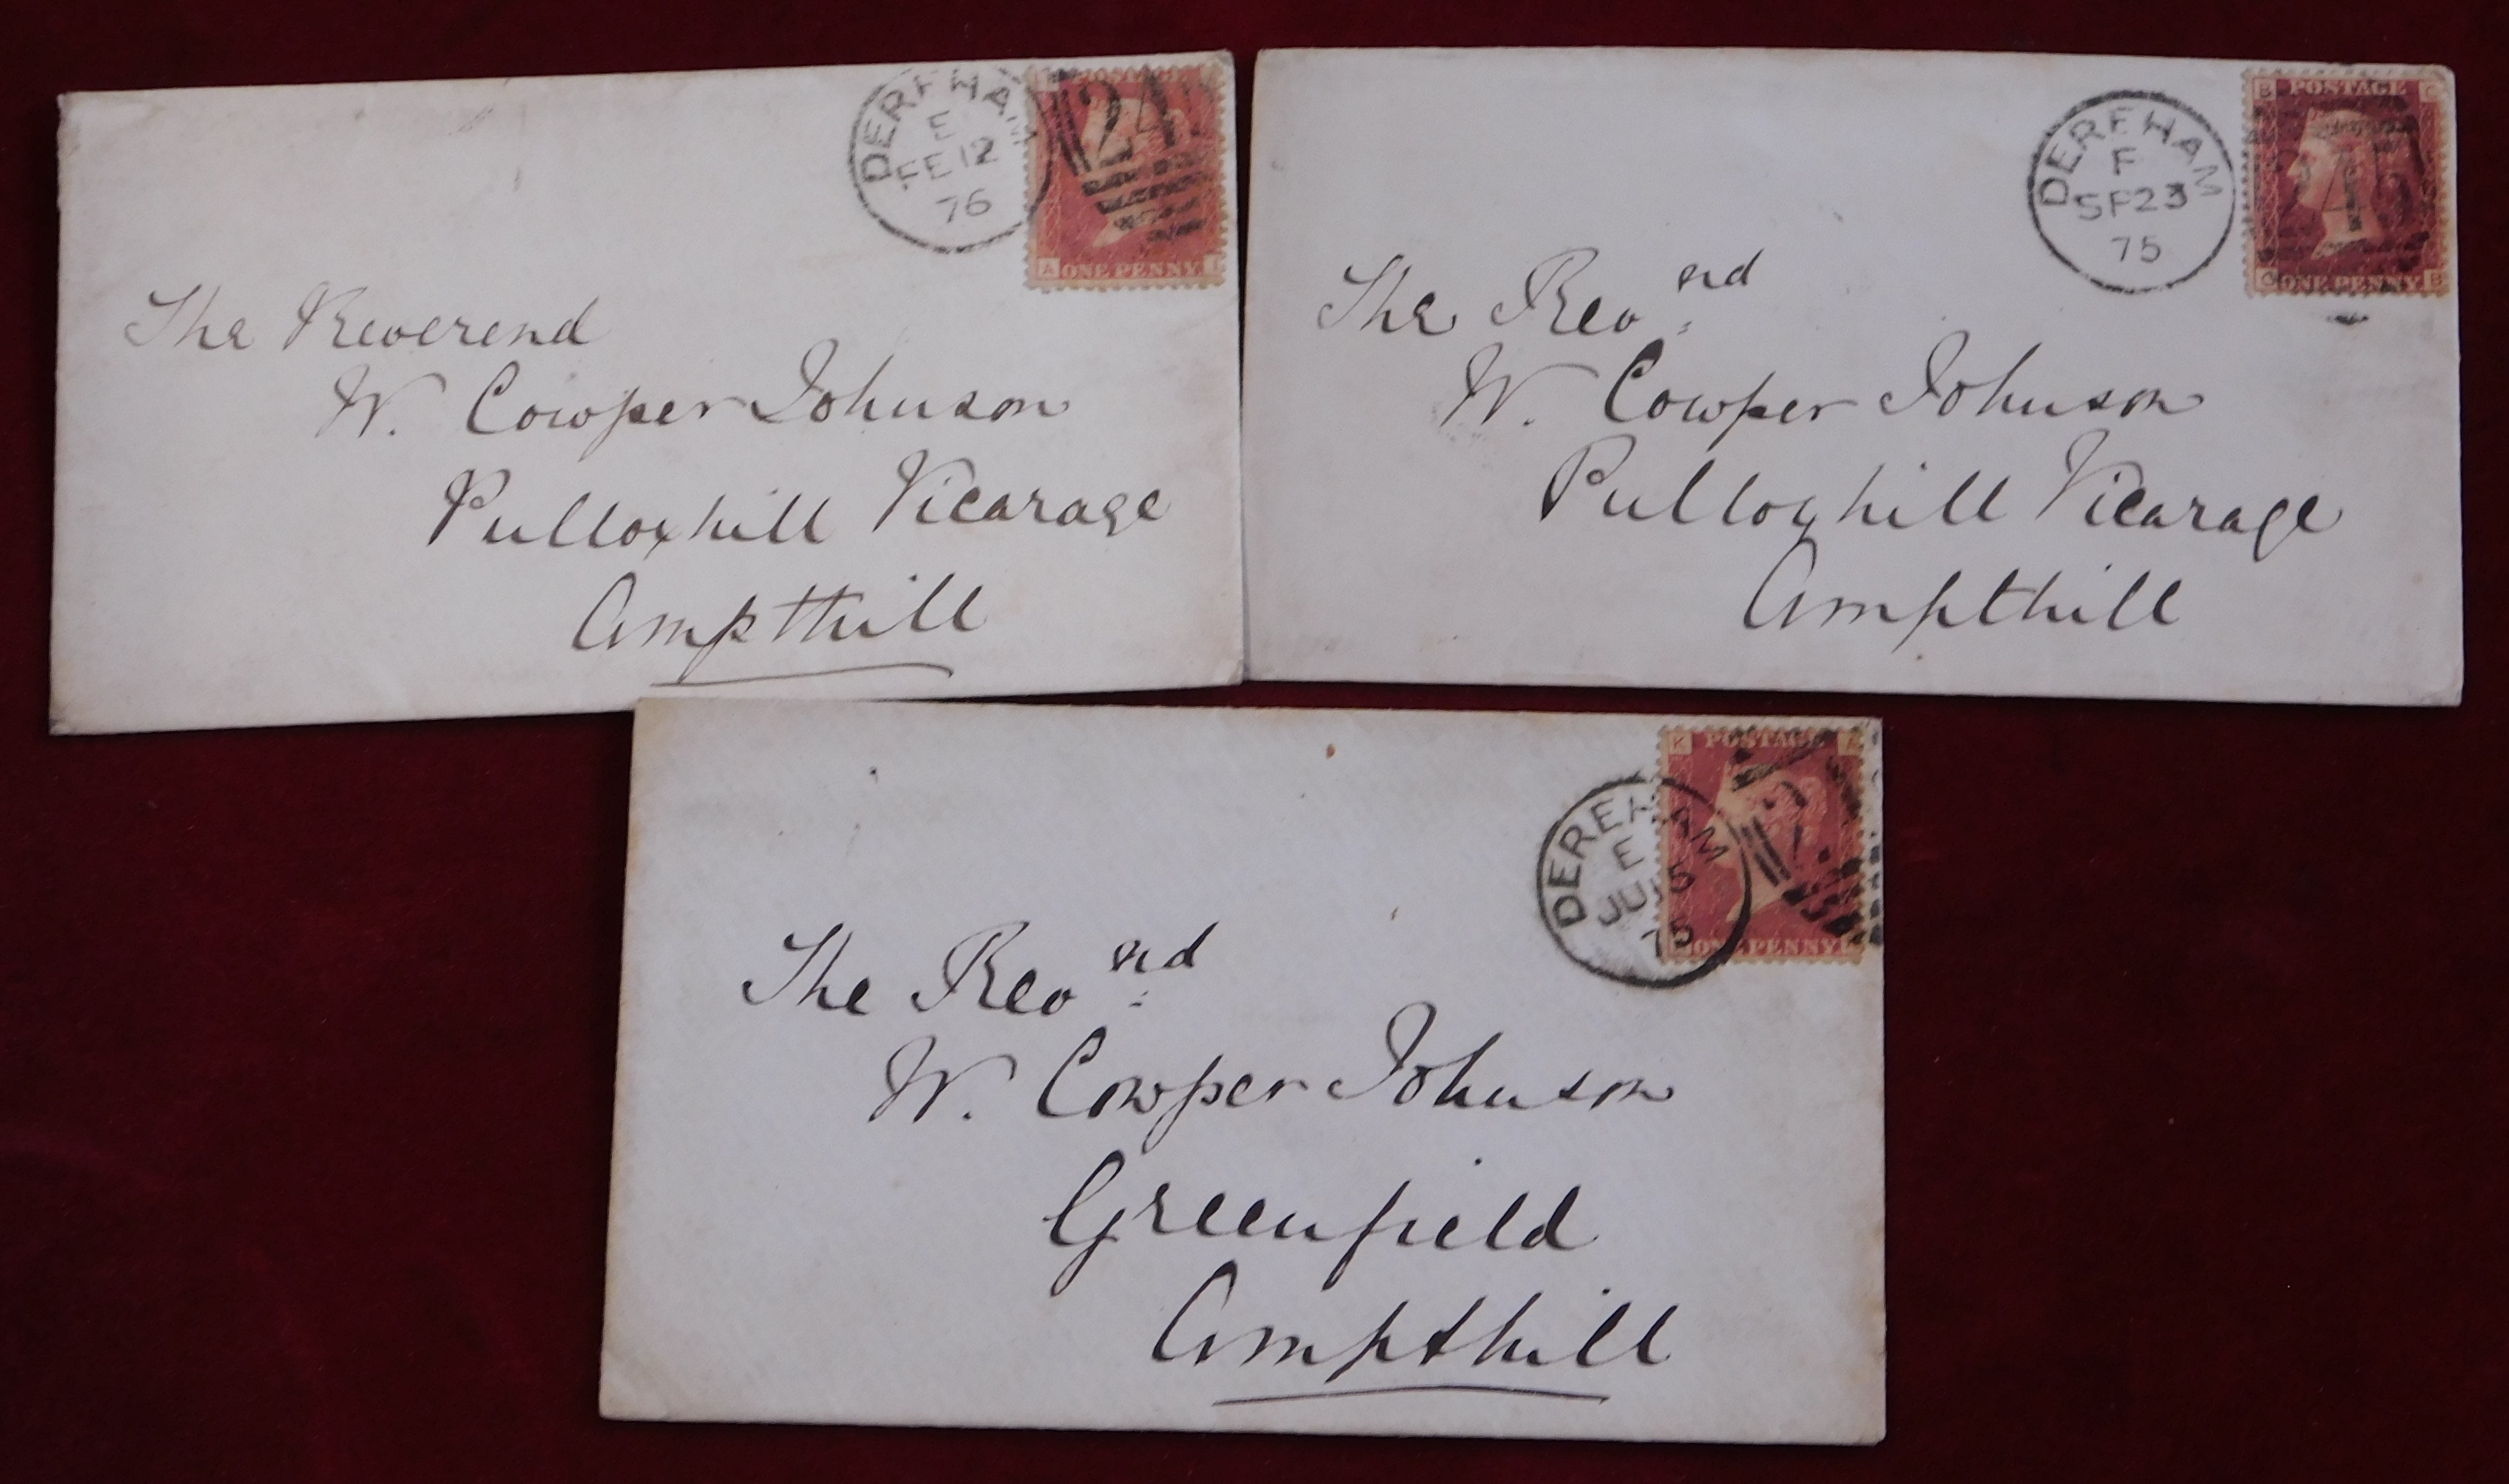 DEREHAM
E
FE 12
76
POSTAGE
24
A ONE PENNY I
The Reverend
W. Cowper Johnson
Pulloxhill Vicarage
Ampthill
DEREHAM
F
SP23
75
B POSTAGE C
C ONE PENNY B
The Revᵉʳᵈ
W. Cowper Johnson
Pulloxhill Vicarage
Ampthill
DEREHAM
E
JU 15
75
K POSTAGE
2
ONE PENNY
The Revᵉʳᵈ
W. Cowper Johnson
Greenfield
Ampthill